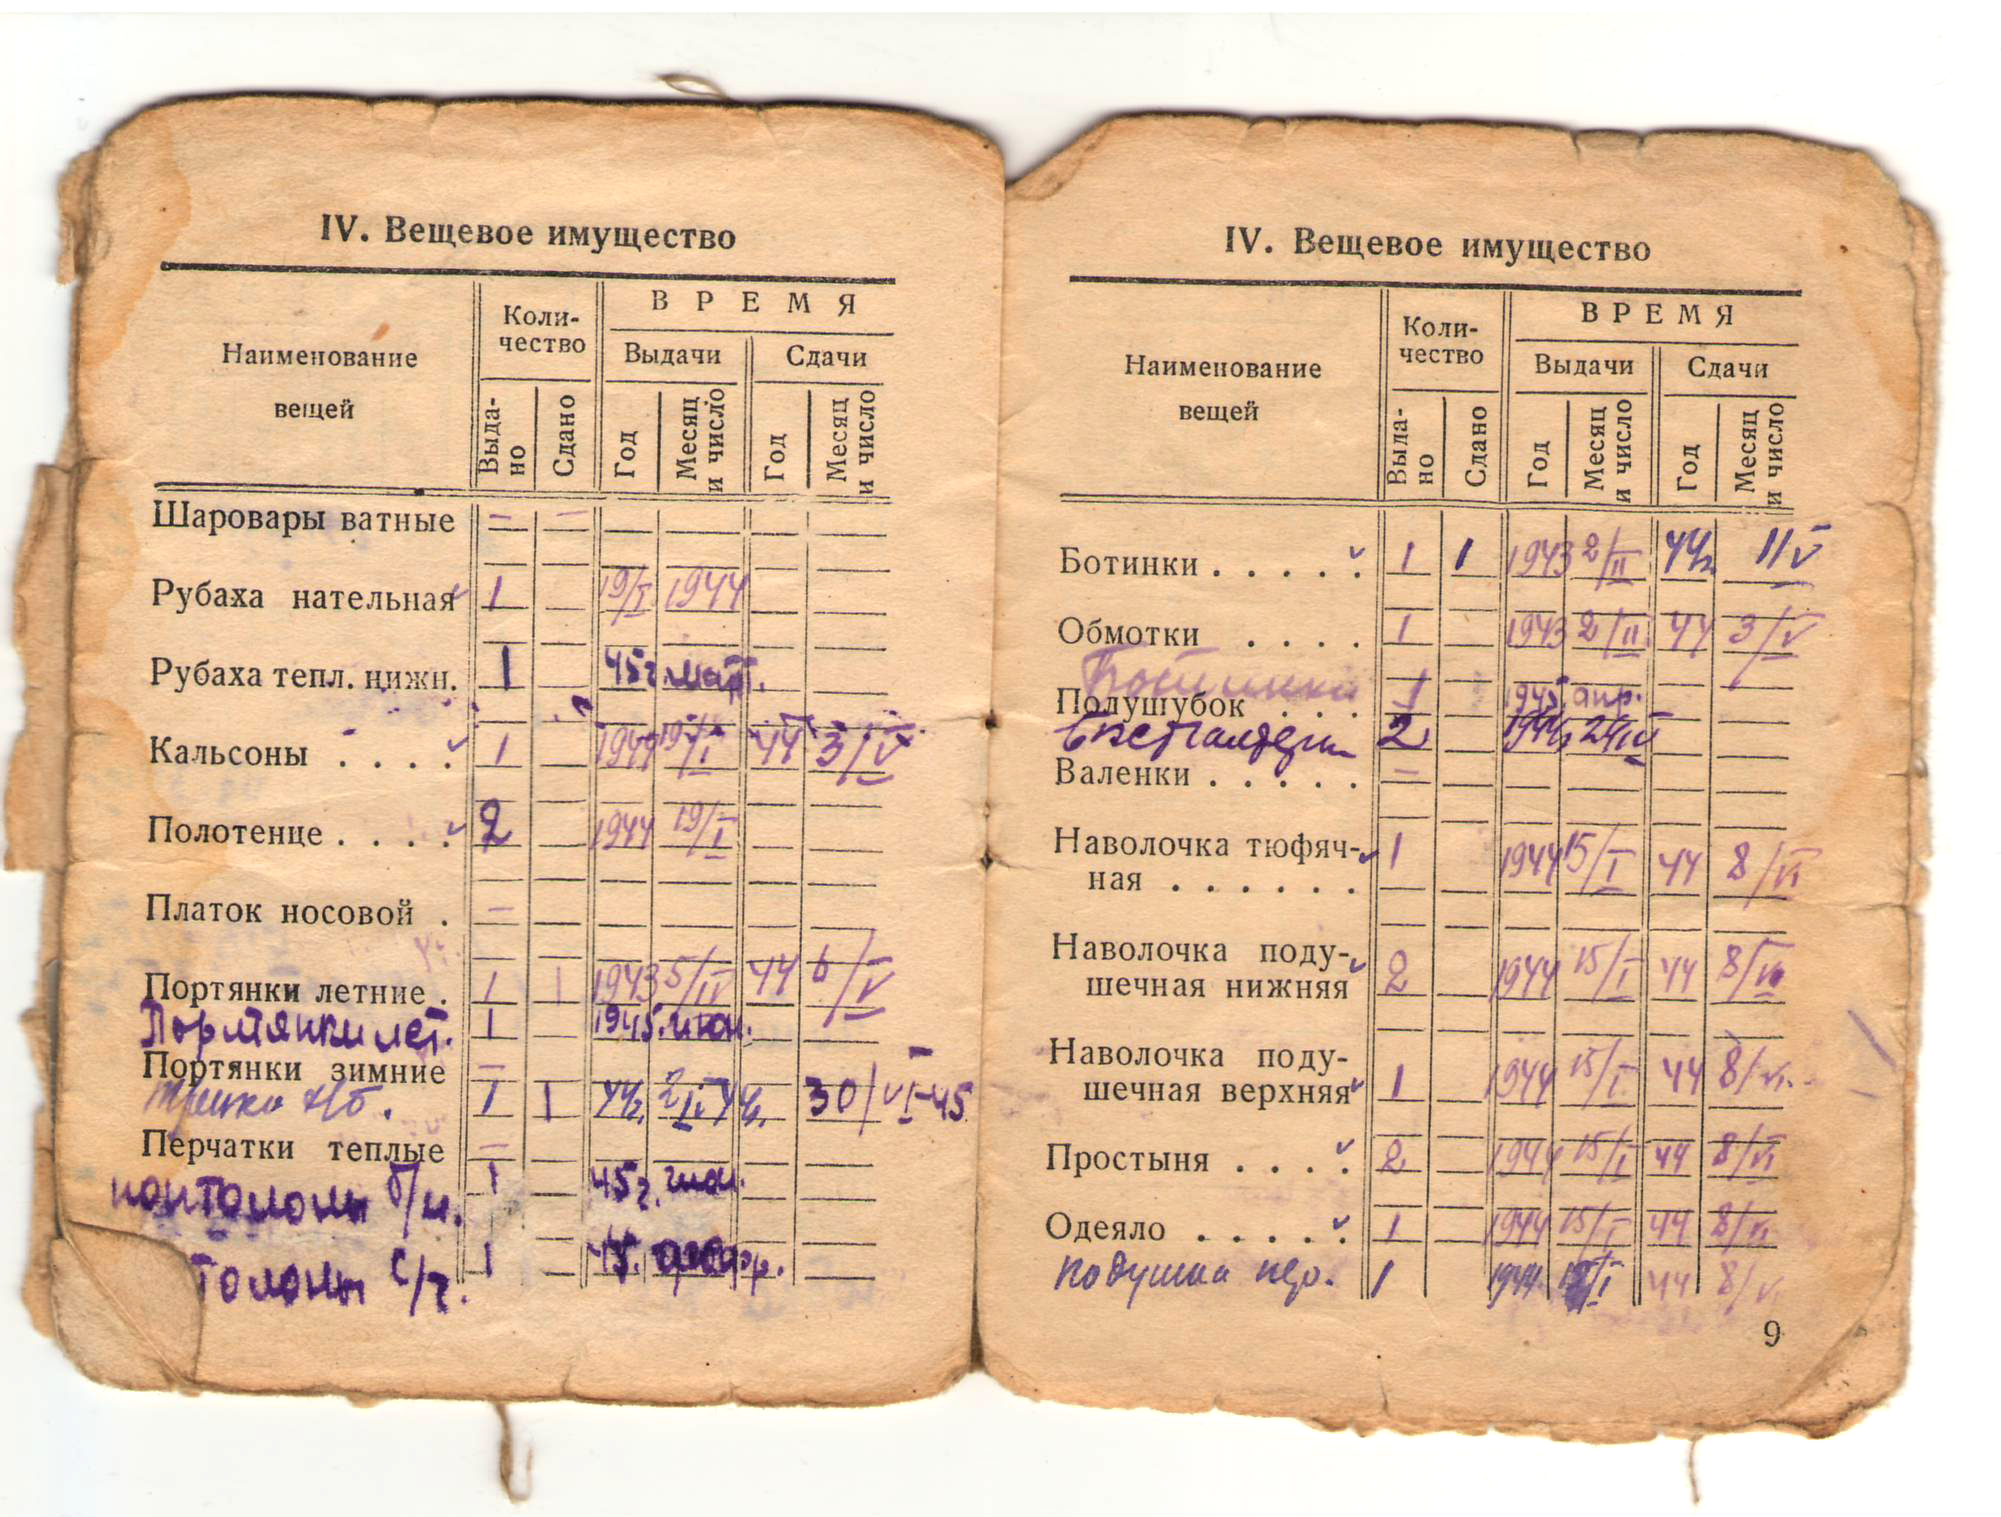 IV. Вещевое имущество
Наименование вещей
Коли-
чество
ВРЕМЯ
Выдачи
Сдачи
Выда-
но
Сдано
Год
Месяц
и число
Год
Месяц
и число
Шаровары ватные – –
Рубаха нательная 1 19/I 1944
Рубаха тепл. нижн. 1 45г. март.
Кальсоны . . . . 1 1944 19/I 44 3/V
Полотенце . . . . 2 1944 19/I
Платок носовой . –
Портянки летние . 1 1 1943 5/IV 44 6/V
Портянки лет. 1 1945. июн.
Портянки зимние –
х/б. 1 1 44г. 2/IV 44г. 30/VI-45
Перчатки теплые –
понтолоны б/и. 1 45г. июн.
толоны с/г. 1 45.
IV. Вещевое имущество
Наименование
вещей
Коли-
чество
ВРЕМЯ
Выдачи
Сдачи
Выда-
но
Сдано
Год
Месяц
и число
Год
Месяц
и число
Ботинки . . . . . 1 1 1943 2/II 44г. 11 V
Обмотки . . . . 1 1943 2/II 44 3/V
Ботинки 1 1945 апр.
Полушубок . . .
2 1944г 24/IV
Валенки . . . . . –
Наволочка тюфяч- 1 1944 15/I 44 8/VI
ная . . . . . .
Наволочка поду- 2 1944 15/I 44 8/VI
шечная нижняя
Наволочка поду-
шечная верхняя 1 1944 15/I 44 8/VI
Простыня . . . . 2 1944 15/I 44 8/VI
Одеяло . . . . . 1 1944 15/I 44 8/VI
подушка пер. 1 1944 15/I 44 8/VI
9